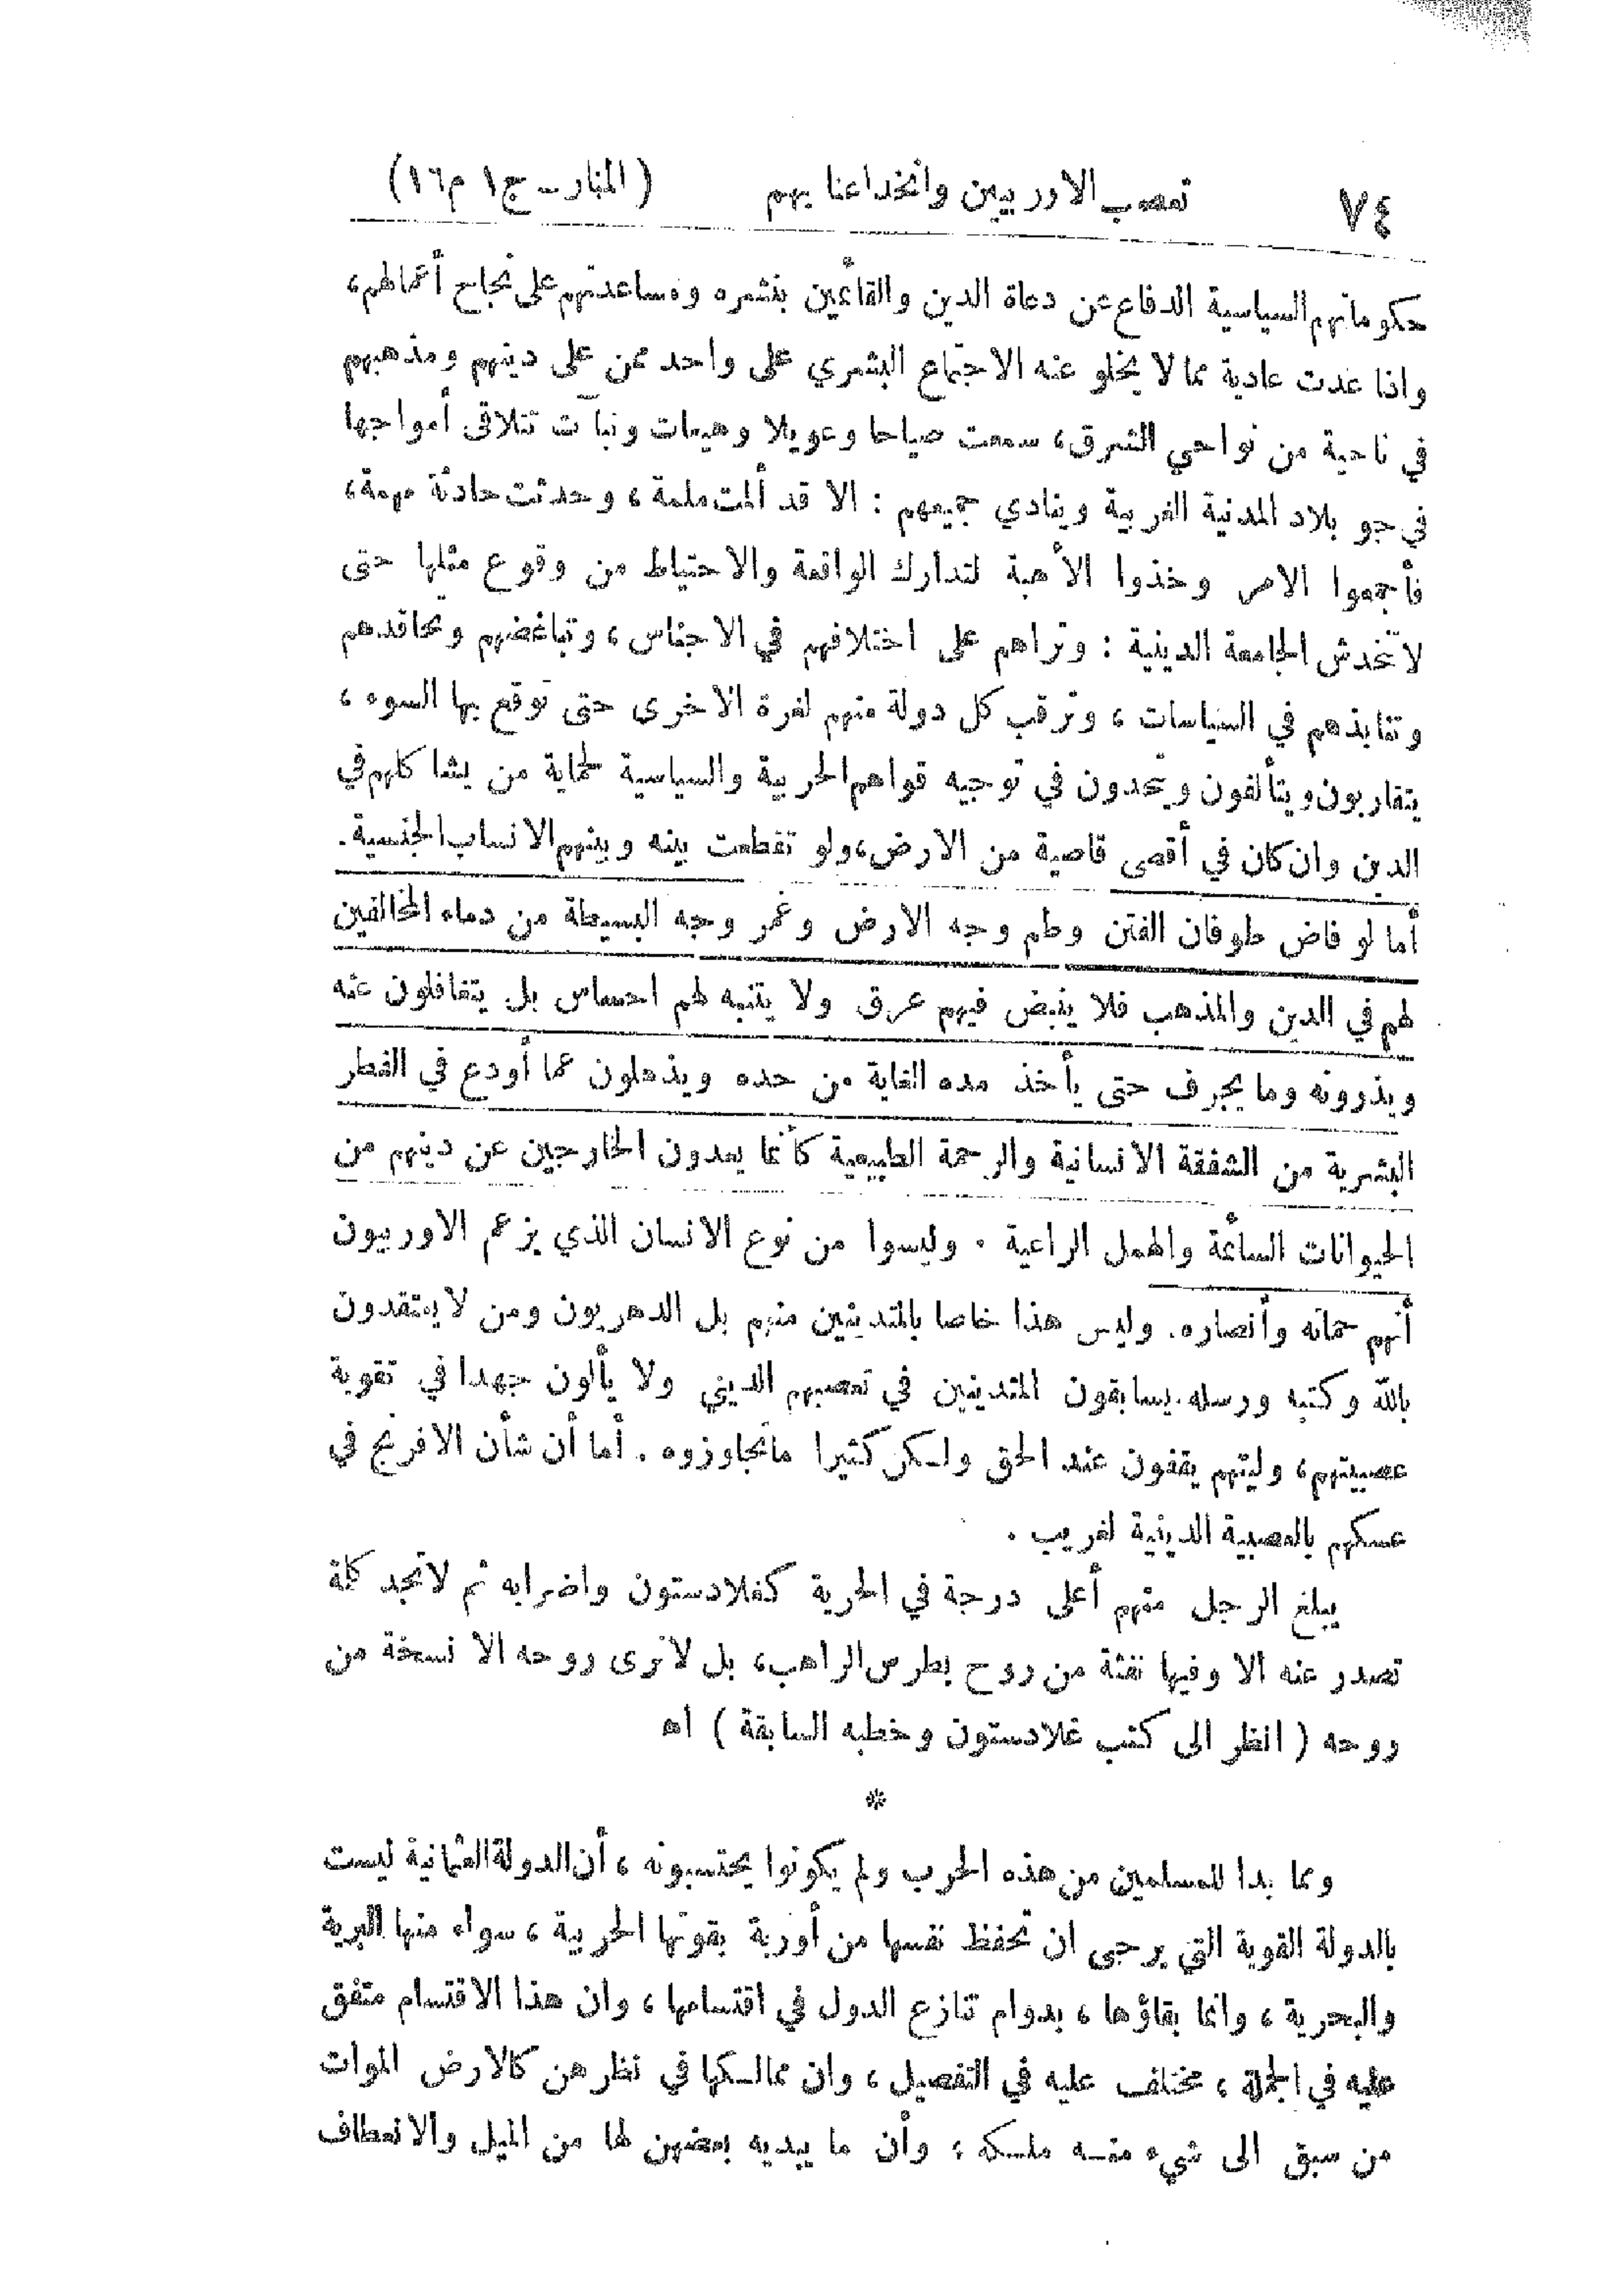 ٧٤ تعصب الاوربيين وانخداعنا بهم (المنار ـ ج١ م١٦)
حكوماتهم السياسية الدفاع عن دعاة الدين والقائمين بنشره ومساعدتهم على نجاح أعمالهم،
واذا عدت عادية مما لا يخلو عنه الاجتماع البشري على واحد ممن على دينهم ومذهبهم
في ناحية من نواحي الشرق، سمعت صياحا وعويلا وهيعات ونبآت تتلاقى أمواجها
في جو بلاد المدنية الغربية وينادي جميعهم : الا قد ألمت ملمة ، وحدثت حادثة مهمة،
فأجمعوا الامر وخذوا الأهبة لتدارك الواقعة والاحتياط من وقوع مثلها حتى
لا تنخدش الجامعة الدينية : وتراهم على اختلافهم في الاجناس ، وتباغضهم وتحاقدهم
وتنابذهم في السياسات ، وترقب كل دولة منهم لغرة الاخرى حتى توقع بها السوء ،
يتقاربون ويتألفون ويتحدون في توجيه قواهم الحربية والسياسية لحماية من يشاكلهم في
الدين وان كان في أقصى قاصية من الارض، ولو تقطعت بينه وبينهم الانساب الجنسية.
أما لو فاض طوفان الفتن وطم وجه الارض وغمر وجه البسيطة من دماء المخالفين
لهم في الدين والمذهب فلا ينبض فيهم عرق ولا يتنبه لهم احساس بل يتغافلون عنه
ويذرونه وما يجرف حتى يأخذ مده الغاية من حده ويذهلون عما أودع في الفطر
البشرية من الشفقة الانسانية والرحمة الطبيعية كأنما يعدون الخارجين عن دينهم من
الحيوانات السائمة والهمل الراعية . وليسوا من نوع الانسان الذي يزعم الاوربيون
أنهم حماته وأنصاره. وليس هذا خاصا بالمتدينين منهم بل الدهريون ومن لا يعتقدون
بالله وكتبه ورسله يسابقون المتدينين في تعصبهم الديني ولا يألون جهدا في تقوية
عصبيتهم، وليتهم يقفون عند الحق ولكن كثيرا ما تجاوزوه . أما أن شأن الافرنج في
تمسكهم بالعصبية الدينية لغريب .
يبلغ الرجل منهم أعلى درجة في الحرية كغلادستون واضرابه ثم لا تجد كلمة
تصدر عنه الا وفيها نفثة من روح بطرس الراهب، بل لا ترى روحه الا نسخة من
روحه ( انظر الى كتب غلادستون وخطبه السابقة ) اه
*
ومما بدا للمسلمين من هذه الحرب ولم يكونوا يحتسبونه ، أن الدولة العثمانية ليست
بالدولة القوية التي يرجى ان تحفظ نفسها من أوربة بقوتها الحربية ، سواء منها البرية
والبحرية ، وانما بقاؤها ، بدوام تنازع الدول في اقتسامها ، وان هذا الاقتسام متفق
عليه في الجملة ، مختلف عليه في التفصيل ، وان ممالكها في نظرهن كالارض الموات
من سبق الى شيء منه ملكه ، وأن ما يبديه بعضهن لها من الميل والانعطاف